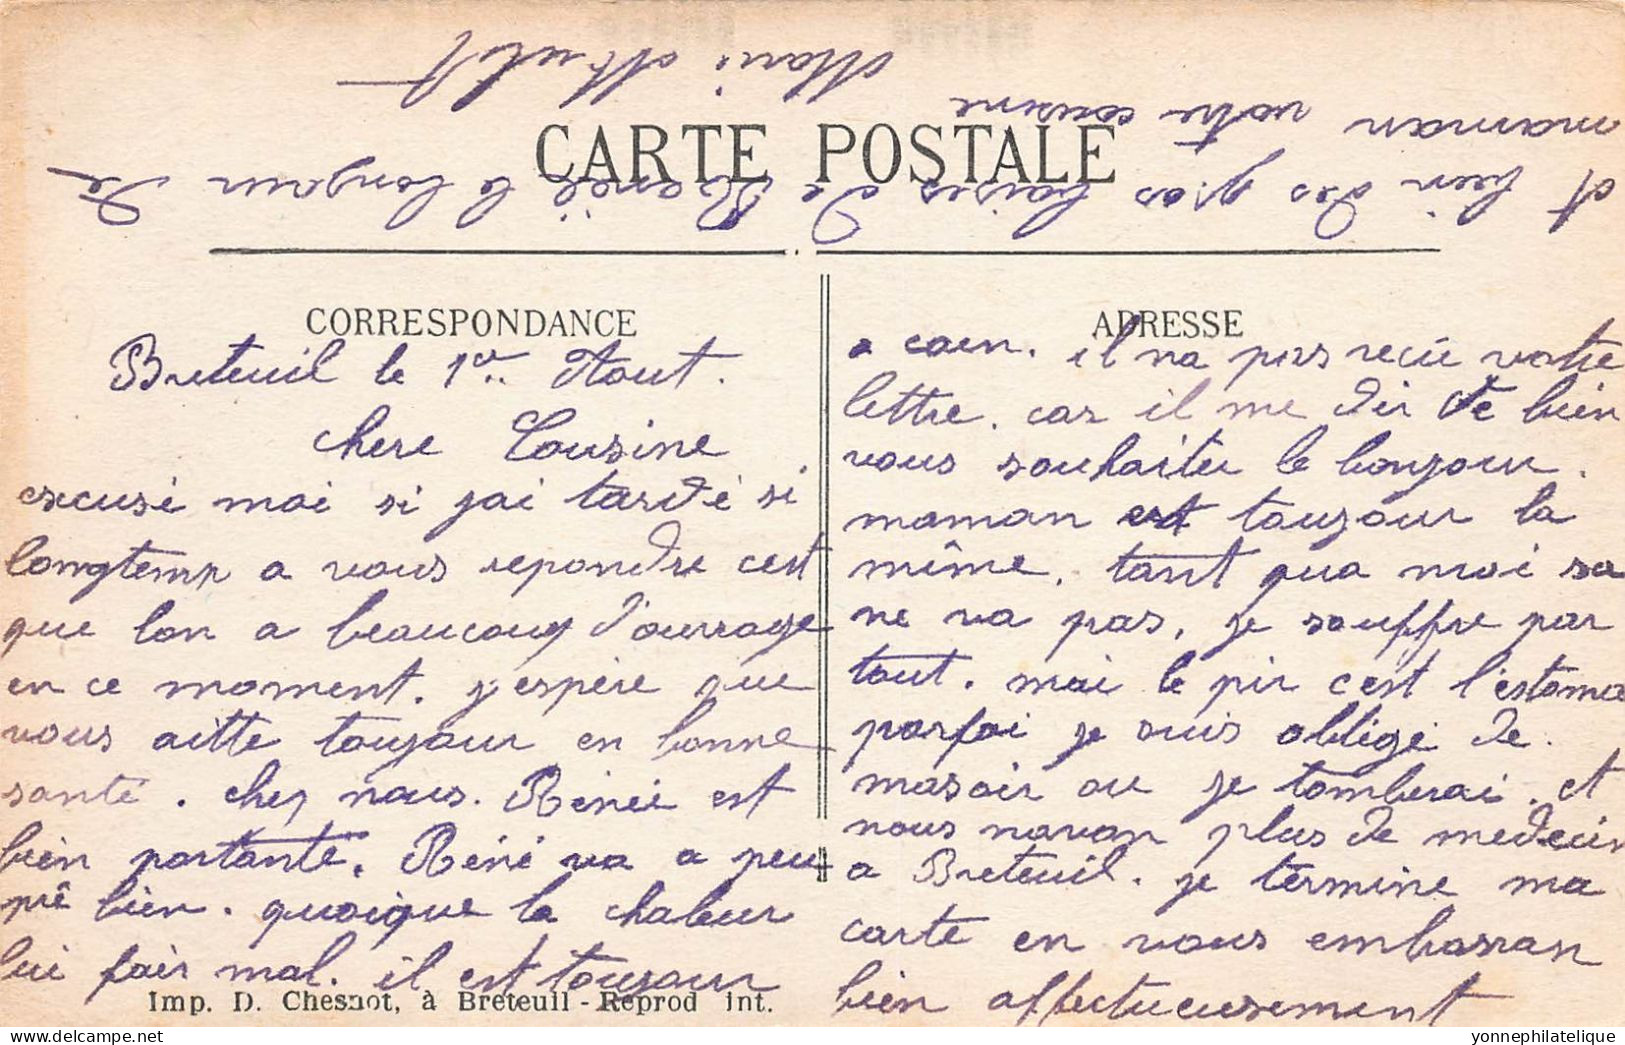 CARTE POSTALE
CORRESPONDANCE
Breteuil le 1er Aout.
chere Cousine
excusé moi si jai tardé si
longtemp a vous repondre cest
que lon a beaucoup d'ouvrage
en ce moment. j'espère que
vous aitte toujour en bonne
santé. chez nous. Rénée est
bien portante. Réné va a peu
prê bien. quoique la chaleur
lui fair mal. il est toujour
ADRESSE
a caen. il na pas recu votre
lettre. car il me dir de bien
vous souhaiter le bonjour.
maman est toujour la
même. tant qua moi sa
ne va pas, je souffre par
tout. mai le pir c'est l'estomac
parfoi je suis obligé de
masoir ou je tomberai. et
nous navon plus de medecin
a Breteuil. je termine ma
carte en vous embrassan
bien affectueusement
et bien des gros baises de Renée le bonjour de
maman votre cousine
Imp. D. Chesnot, à Breteuil - Reprod int.
yonnephilatelique